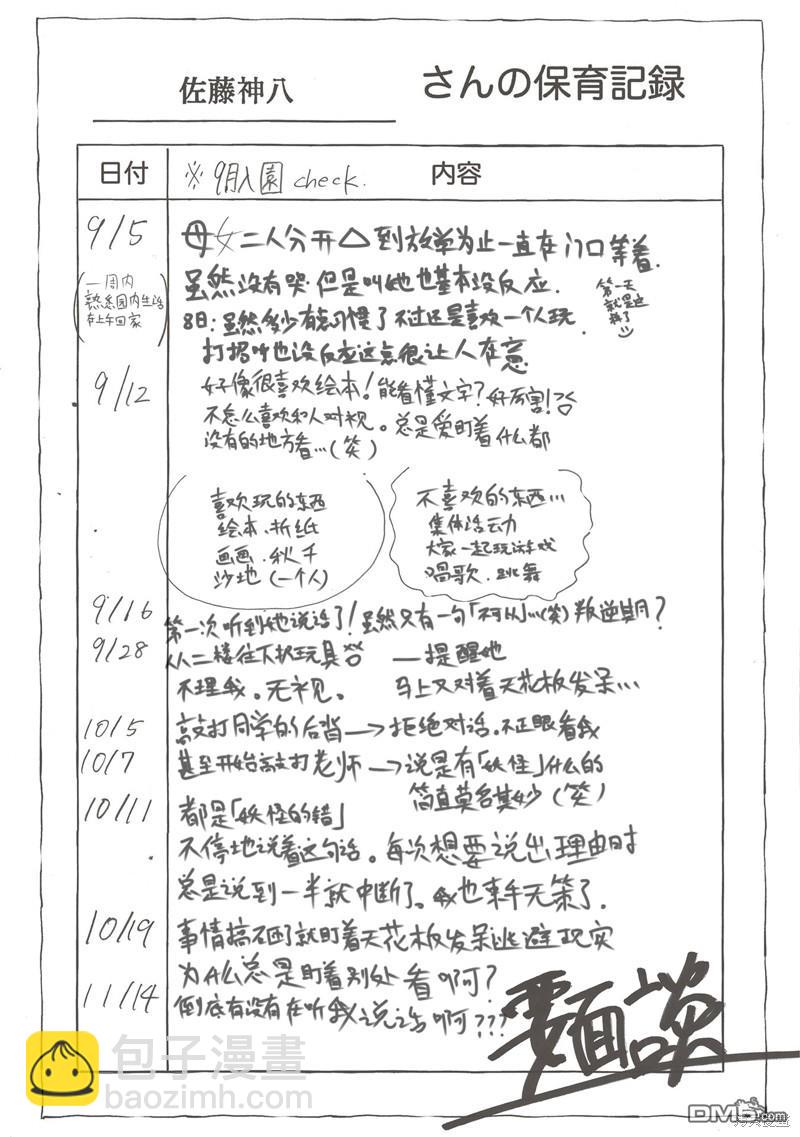 佐藤神八 さんの保育記録
日付 ※9月入園 check. 内容
9/5 母女二人分开△到放单为止一直在门口等着.
虽然没有哭.但是叫她也基本没反应.
第一天
就是这
样了
(一周内
熟悉园内生活
在上午回家)
8日:虽然多少有点习惯了 不过还是喜欢一个人玩.
打招呼也没反应这点很让人在意
9/12 好像很喜欢绘本!能看懂文字?好厉害!
不怎么喜欢和人对视。总是爱盯着什么都
没有的地方看…(笑)
喜欢玩的东西
绘本.折纸
画画.秋千
沙地(一个人)
不喜欢的东西…
集体活动
大家一起玩游戏
唱歌.跳舞
9/16 第一次听到她说话了!虽然只有一句「不可以」…(笑)叛逆期?
9/28 从二楼往下扔玩具 —提醒她
不理我。无视。 马上又对着天花板发呆…
10/5 敲打同学的后背→拒绝对话.不正眼看我
10/7 甚至开始敲打老师→说是有「妖怪」什么的
简直莫名其妙(笑)
10/11 都是「妖怪的错」
不停地说着这句话。每次想要说出理由时
总是说到一半就中断了。我也束手无策了.
10/19 事情搞砸了就盯着天花板发呆逃避现实
为什么总是盯着别处看啊?
11/14 倒底有没有在听我说话啊???
要面谈
包子漫畫
baozimh.com
DM5.com